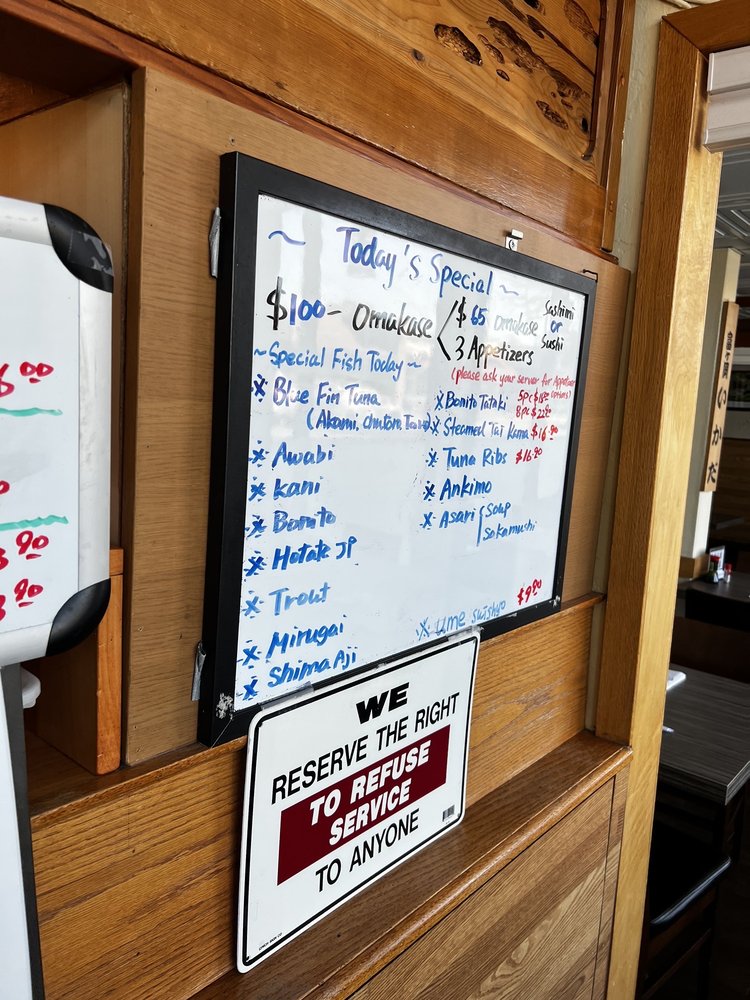 ~ Today's Special ~
$100- Omakase
$65 Omakase
3 Appetizers
Sashimi
or
Sushi
(please ask your server for Appetizer options)
~Special Fish Today~
※ Blue Fin Tuna
(Akami, chutoro, Toro)
※ Awabi
※ Kani
※ Bonito
※ Hotate JP
※ Trout
※ Mirugai
※ Shima Aji
※ Bonito Tataki
5pc
8pc $22.00
※ Steamed Tai Kama $16.90
※ Tuna Ribs $16.90
※ Ankimo
※ Asari Soup
Sakamushi
$9.90
※ ume
WE
RESERVE THE RIGHT
TO REFUSE
SERVICE
TO ANYONE
いかだ